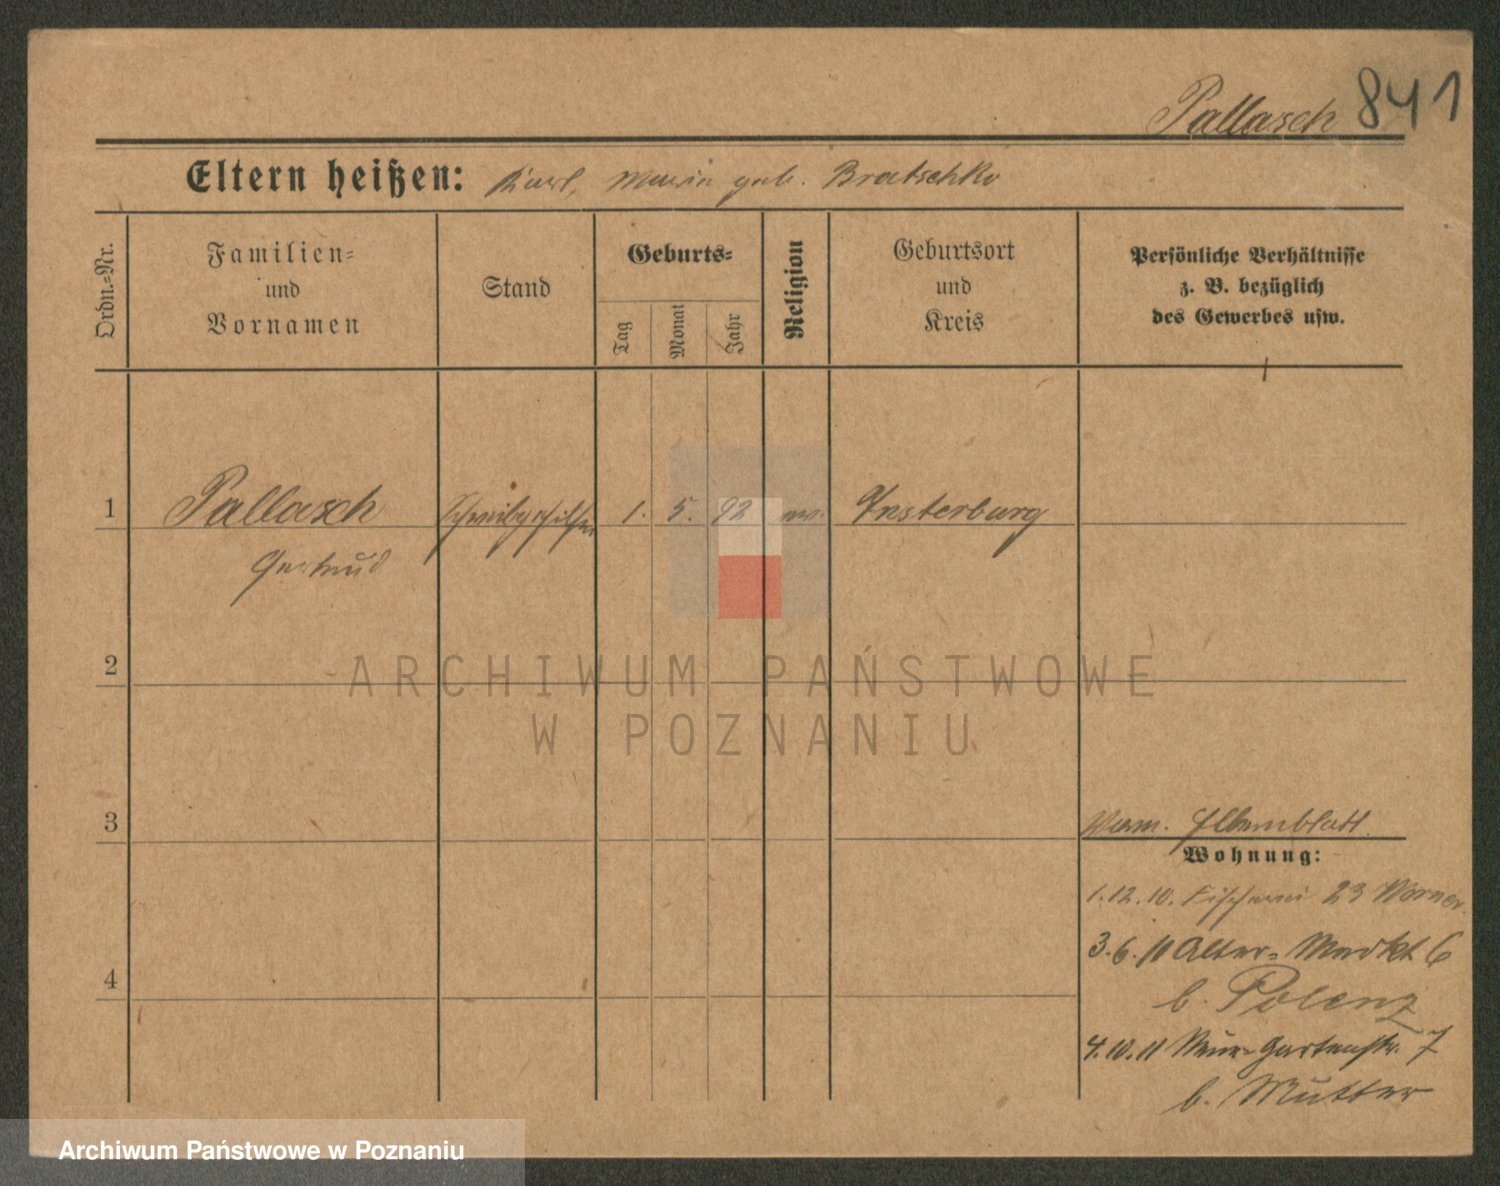 Pallasch 841
Eltern heißen: Karl, Maria geb. Bratschko
Ordn.-Nr.
Familien-
und
Vornamen
Stand
Geburts-
Tag
Monat
Jahr
Religion
Geburtsort
und
Kreis
Persönliche Verhältnisse
z. B. bezüglich
des Gewerbes usw.
1 Pallasch Schreibgehilfin 1. 5. 92 ev. Insterburg
Gertrud
2
ARCHIWUM PAŃSTWOWE
W POZNANIU
3
Elternblatt
Wohnung:
1.12.10. Fischerei 23
3.6.11 Alter-Markt 6
b. Polenz
4
4.10.11 Neue-Gartenstr. 7
b. Mutter
Archiwum Państwowe w Poznaniu